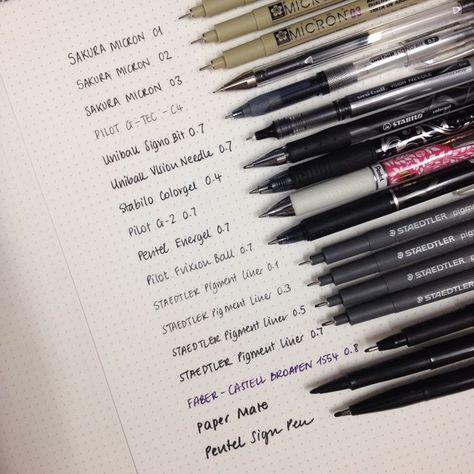 SAKURA MICRON 01
SAKURA MICRON 02
SAKURA MICRON 03
PILOT G-TEC-C4
Uniball Signo Bit 0.7
Uniball Vision Needle 0.7
Stabilo Colorgel 0.4
Pilot G-2 0.7
Pentel Energel 0.7
Pilot Frixion Ball 0.7
STAEDTLER Pigment Liner 0.1
STAEDTLER Pigment Liner 0.3
STAEDTLER Pigment Liner 0.5
STAEDTLER Pigment Liner 0.7
FABER-CASTELL BROAPEN 1554 0.8
PAPER MATE
Pentel Sign Pen
MICRON
MICRON 03
VISION NEEDLE
STABILO
STAEDTLER
STAEDTLER
STAEDTLER
STAEDTLER